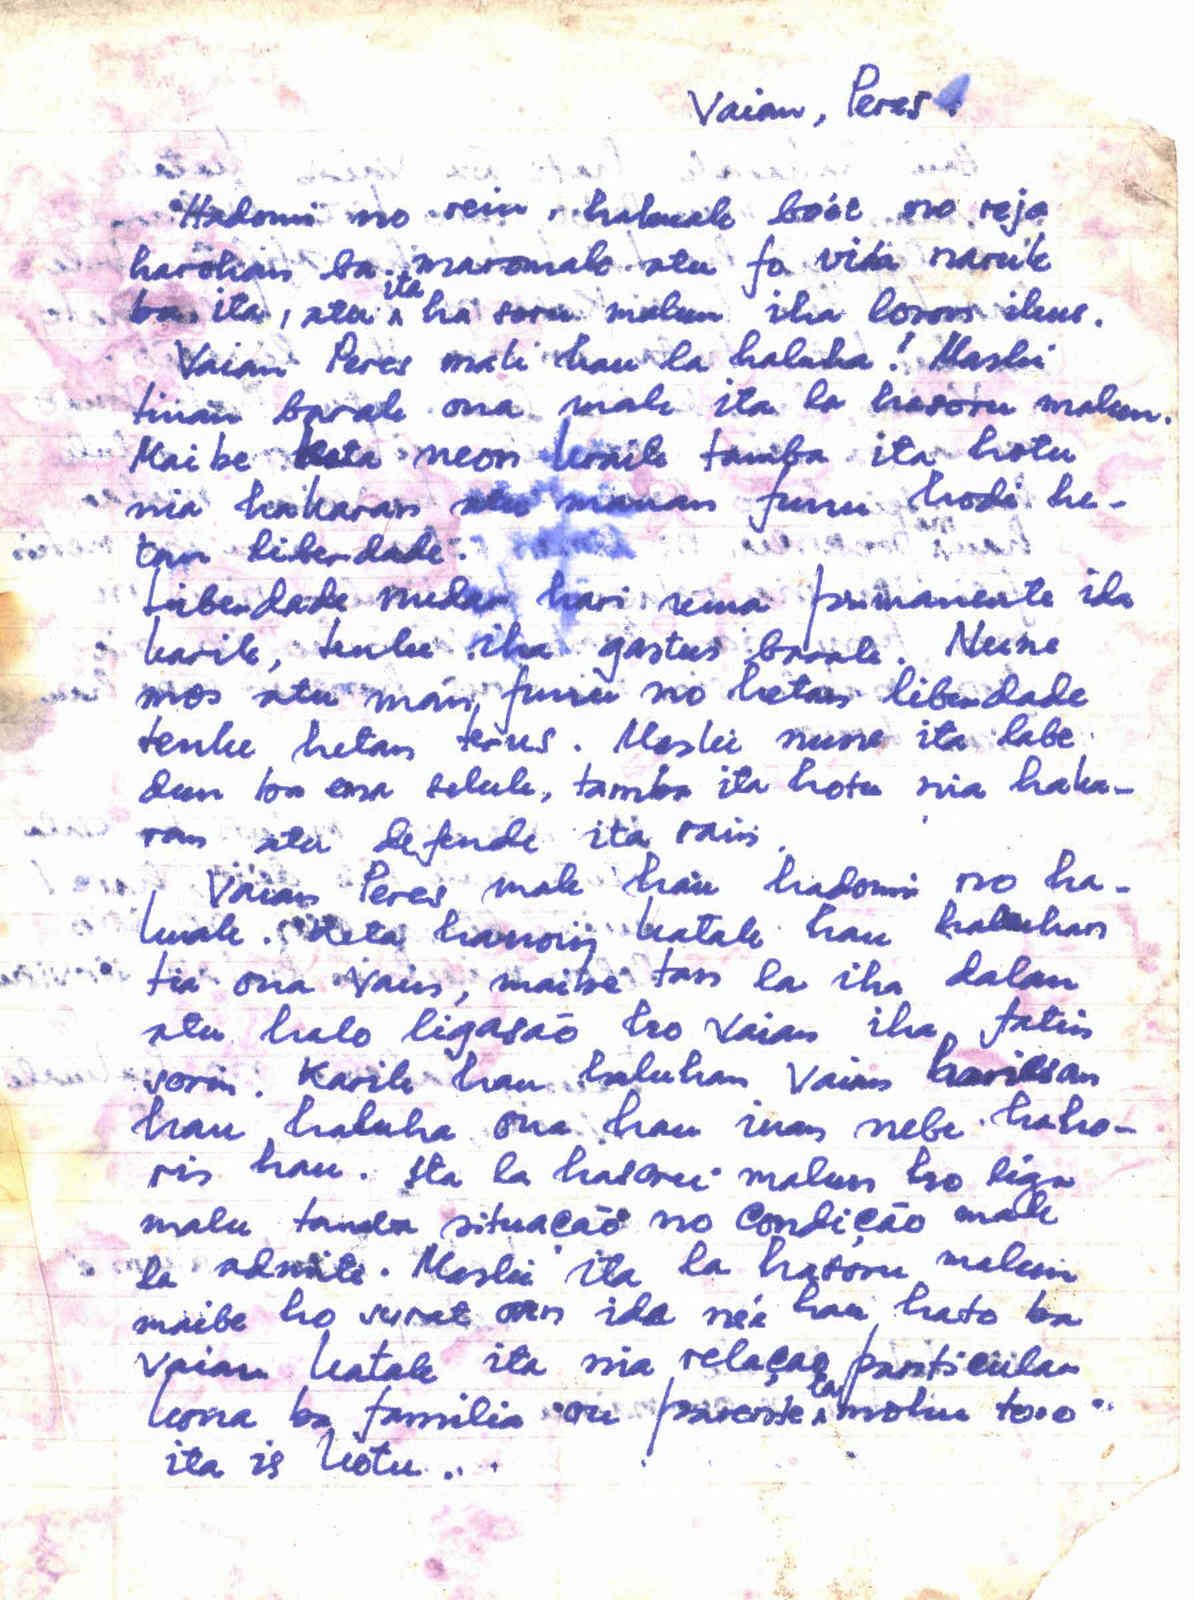 Vaian, Peres.
Hadomi no rein, hakuak boót no reja
harohan ba maromak atu fo vida naruk
ba ita, atu ita ha soru malun iha loron ikus.
Vaian Peres mak hau la haluha! Maski
tinan barak ona mak ita la hasoru malun.
Maibe keta neon kraik tamba ita hotu
nia hakaran atu manan funu hodi he-
tan liberdade.
Liberdade nudar hari uma pirmanente ida
karik, tenke iha gastus barak. Nune
mos atu mán funu no hetan liberdade
tenke hetan terus. Maski nune ita labe
dun ba ema seluk, tamba ita hotu nia haka-
ran atu defende ita rain.
Vaian Peres mak háu hadomi no ha-
kuak. Keta hanoin katak hau haluhan
tia ona Vain, maibe tan la iha dalan
atu halo ligasão ho Vaian iha fatin
sorin. Karik hau haluhan Vaian
hau haluha ona hau inan nebe haho-
ris hau. Ita la hasoru malun ho liga
malu tamba situação no condição mak
la admite. Maski ita la hasoru malun
maibe ho surat oan ida neé hau hato ba
Vaian katak ita nia relaçao particular
kona ba familia ou parente la mohu to'o
ita is kotu...